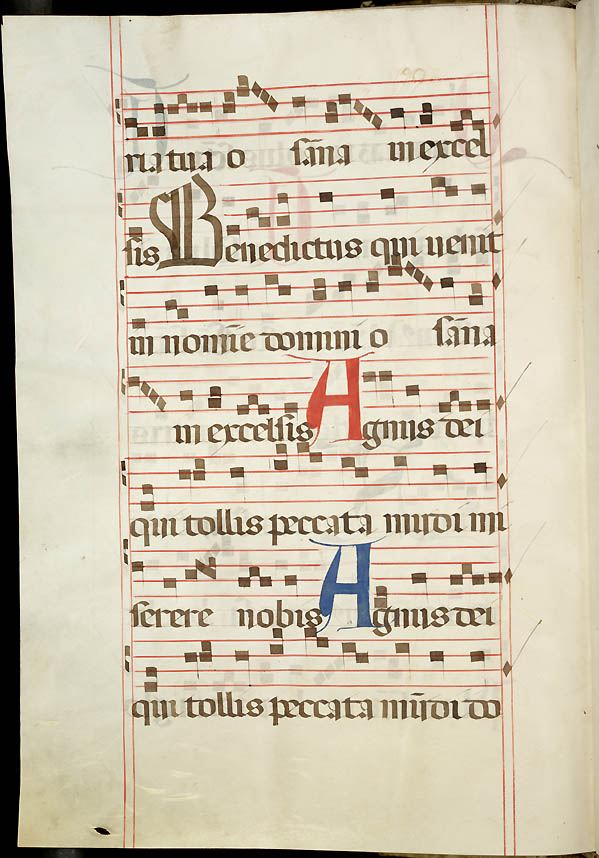 ria tua o sāna in excel
sis Benedictus qui uenit
in nomīe domini o sāna
in excelsis Agnus dei
qui tollis peccata mūdi mi
serere nobis Agnus dei
qui tollis peccata mūdi do